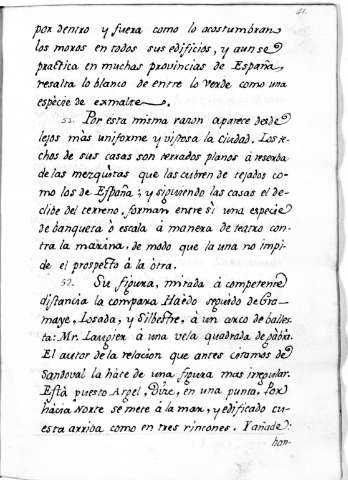 41.
por dentro y fuera como lo acostumbran
los moros en todos sus edificios, y aun se
practica en muchas provincias de España,
resalta lo blanco de entre lo verde como una
espècie de exmalte.
51. Por esta misma razon aparece desde
lejos màs uniforme y vistosa la ciudad. Los te-
chos de sus casas son terrados planos à reserba
de las mezquitas que las cubren de tejados co-
mo los de España; y siguiendo las casas el de-
clibe del terreno, forman entre sì una especie
de banqueta ò escala à manera de teatro con-
tra la marina, de modo que la una no impi-
de el prospecto à la otra.
52. Su figura, mirada à competente
distancia la compara Haedo seguido de Gra-
maye, Losada, y Silbestre, à un arco de balles-
ta: Mr. Laugier à una vela quadrada de gàbia.
El autor de la relacion que antes citamos de
Sandoval la hàce de una figura mas irregular.
Està puesto Argel, Dize, en una punta. Por
hàcia Norte se mete à la mar, y edificado cu-
esta arriba como en tres rincones. Y añade:
hon-